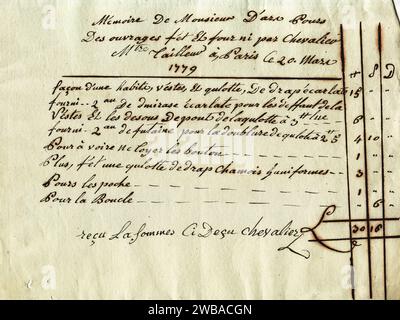 Mémoire de Monsieur Darx Pours
Des ouvrages fét & fourni par Chevalier
Mtre Tailleur à Paris ce 20 Mars
1779
₶ S D
façon d'une habite, vestes & qulotte, De drap écarlate 15 " "
fourni 2 au De mirase écarlate pour les de 
Vestes & les dessous De pont de la qulotte à 3
fourni 2 au de futaine pour la doublure de qulote à 4 10 "
Pour à voire netoyer les bouton 1 " "
Plus, fét une qulotte de drap chamois & uniformes 3 " "
Pours les poche 1 " "
Pour la Boucle " 6 "
30 16
reçu La sommes Ci Deçu Chevalier
alamy
Image ID: 2WBACGN
www.alamy.com